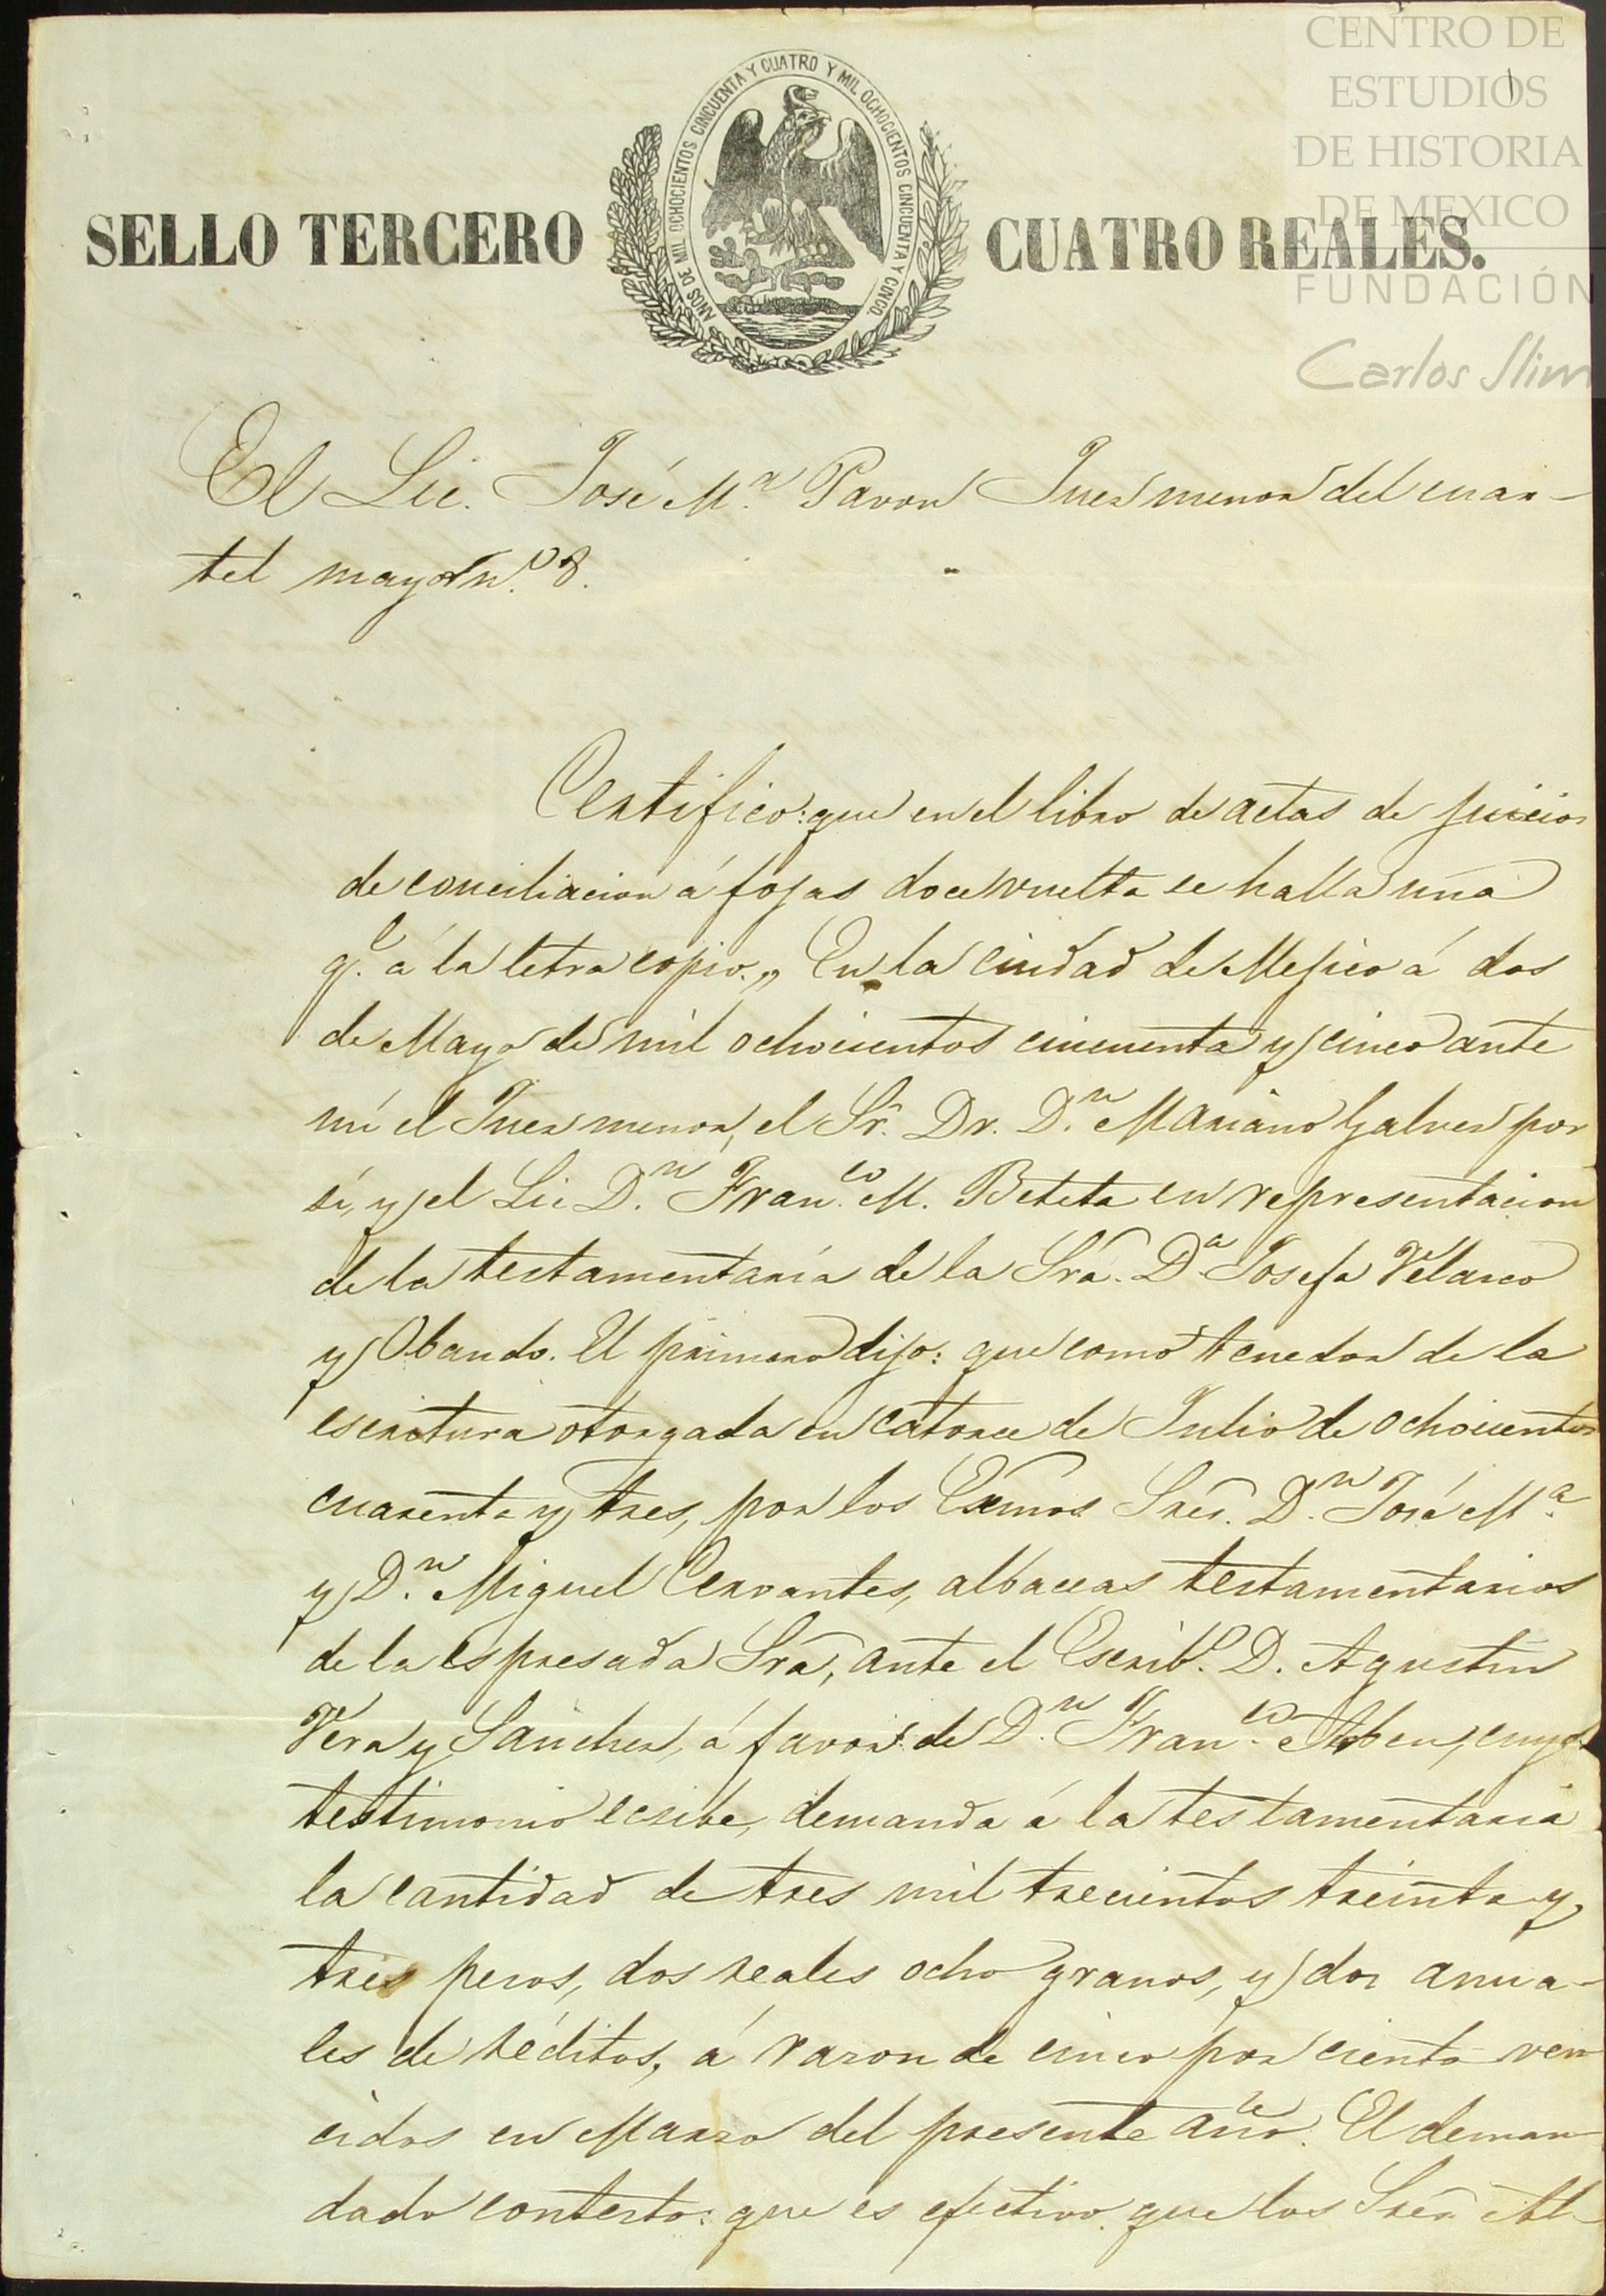 CENTRO DE
ESTUDIOS
DE HISTORIA
DE MEXICO
FUNDACIÓN
Carlos Slim
AÑOS DE MIL OCHOCIENTOS CINCUENTA Y CUATRO Y MIL OCHOCIENTOS CINCUENTA Y CINCO.
SELLO TERCERO CUATRO REALES.
El Lic. José M.ª Pavon Juez menor del cuar-
tel mayor n.º 8.
Certifico: que en el libro de actas de juicios
de conciliacion á fojas doce vuelta se halla una
q.e á la letra copio.,, En la ciudad de Mejico á dos
de Mayo de mil ochocientos cincuenta y cinco ante
mí el Juez menor, el Sr. Dr. D.n Mariano Galvez por
sí, y el Lic D.n Fran.co M. Beteta en representacion
de la testamentaría de la Sra. D.ª Josefa Velasco
y Obando. El primero dijo: que como tenedor de la
escritura otorgada en catorce de Julio de ochocientos
cuarenta y tres, por los Exmos Sres. D.n José M.ª
y D.n Miguel Cervantes, albaceas testamentarios
de la espresada Sra, ante el Escrib.o D. Agustin
Vera y Sanchez, á favor de D.n Fran.co
testimonio demanda á la testamentaria
la cantidad de tres mil trecientos treinta y
tres pesos, dos reales ocho granos, y dos anua-
les de réditos, á razon de cinco por ciento ven-
cidos en Marzo del presente año. El deman-
dado contestó: que es efectivo que los Sres Al-